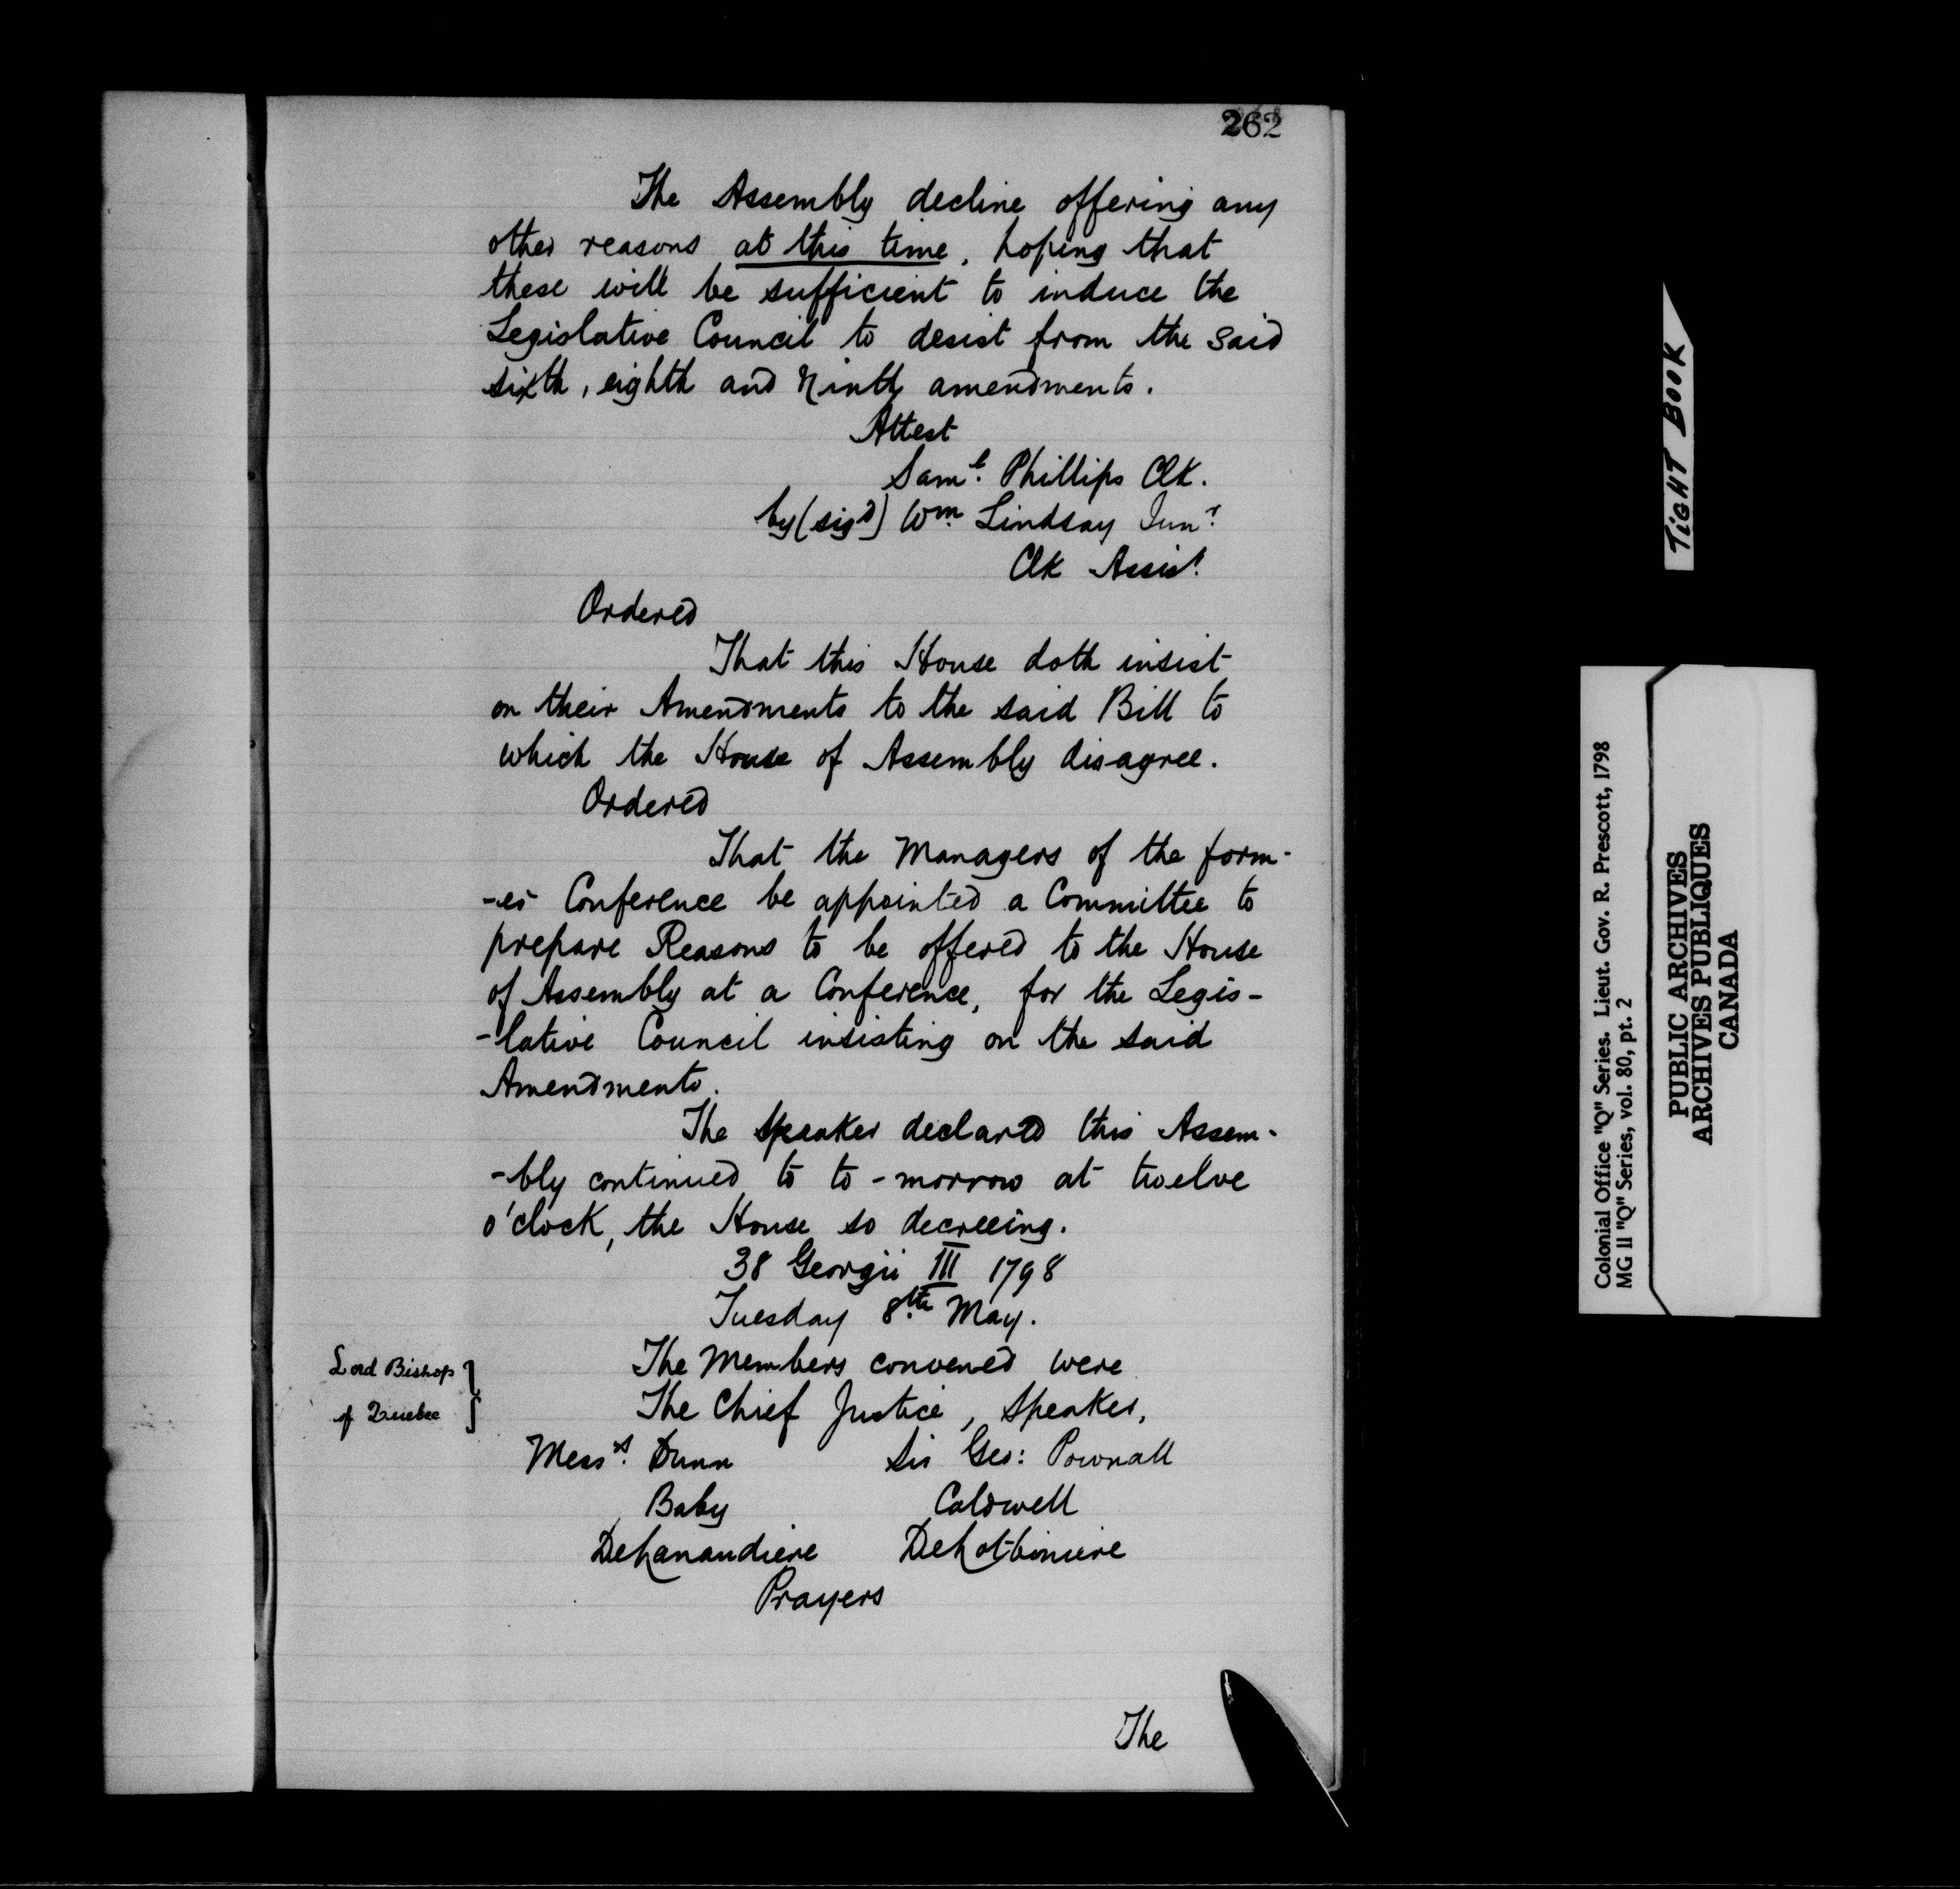 262
The Assembly decline offering any
other reasons at this time, hoping that
these will be sufficient to induce the
Legislative Council to desist from the said
sixth, eighth and Ninth amendments.
Attest
Saml. Phillips Clk.
by (sigd) Wm. Lindsay Junr.
Clk Assist.
Ordered
That this House doth insist
on their Amendments to the said Bill to
which the House of Assembly disagree.
Ordered
That the Managers of the form-
-er Conference be appointed a Committee to
prepare Reasons to be offered to the House
of Assembly at a Conference, for the Legis-
-lative Council insisting on the said
Amendments.
The Speaker declared this Assem-
-bly continued to to-morrow at twelve
o'clock, the House so decreeing.
38 Georgii III 1798
Tuesday 8th May.
The Members convened were
Lord Bishop
of Quebec
The Chief Justice, Speaker,
Messrs. Dunn Sir Geo: Pownall
Baby Caldwell
DeLanaudiere DeLotbiniere
Prayers
The
TIGHT BOOK
Colonial Office "Q" Series. Lieut. Gov. R. Prescott, 1798
MG 11 "Q" Series, vol. 80, pt. 2
PUBLIC ARCHIVES
ARCHIVES PUBLIQUES
CANADA